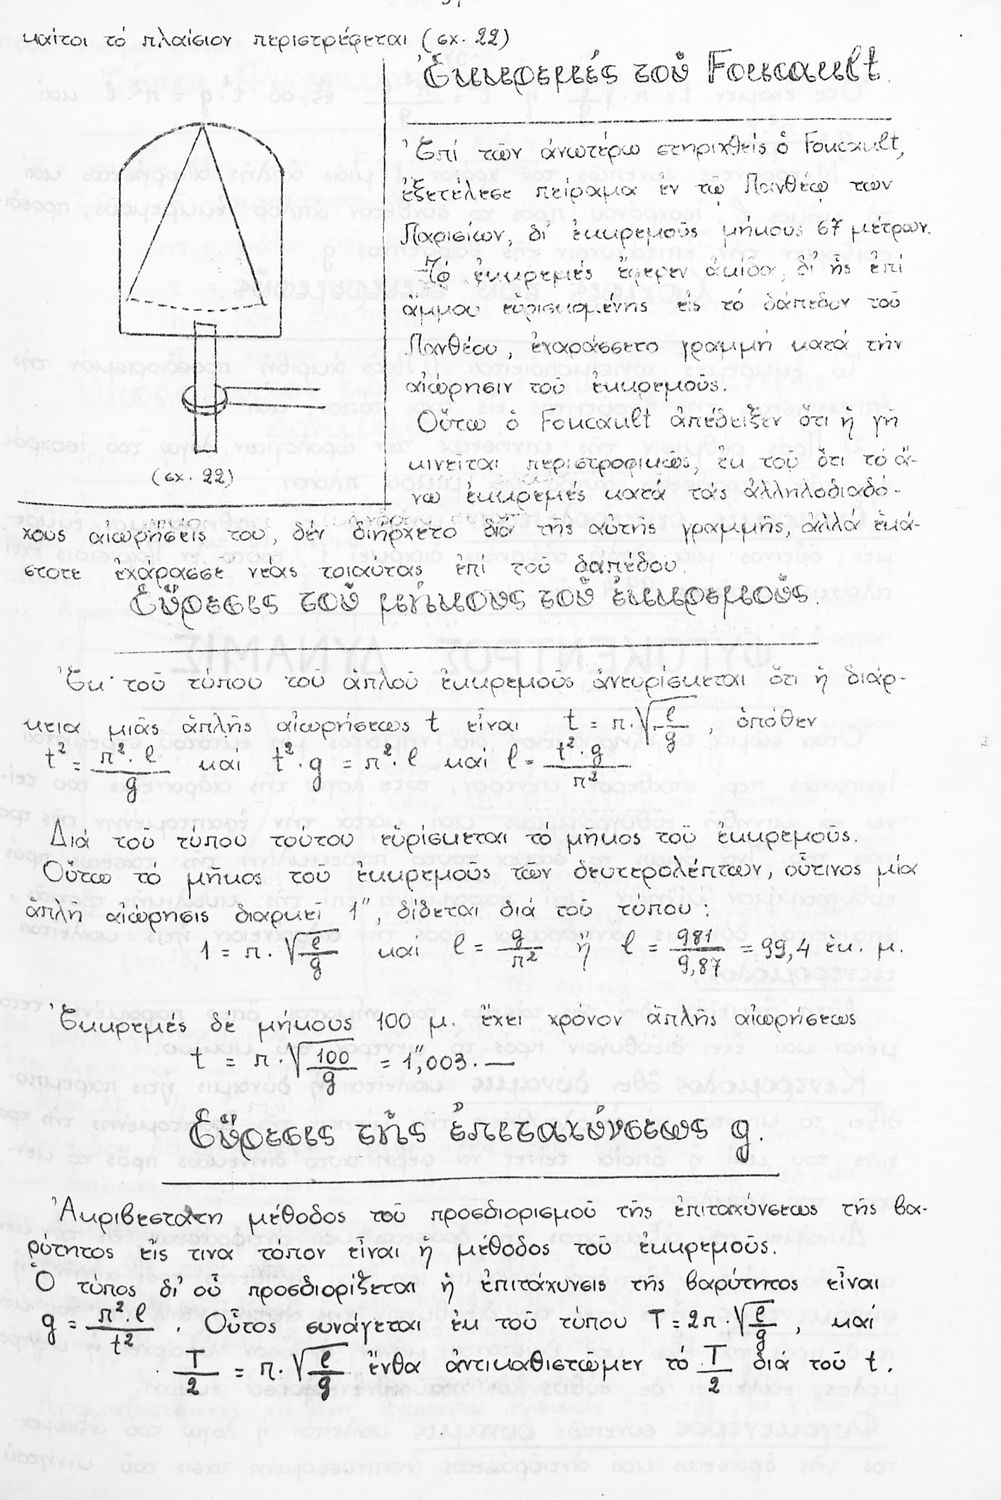 καίτοι τό πλαίσιον περιστρέφεται (σχ. 22)
Ἐκκρεμές τοῦ Foucault.
Ἐπί τῶν ἀνωτέρω στηριχθείς ὁ Foucault,
ἐξετέλεσε πείραμα ἐν τῷ Πανθέῳ των
Παρισίων, δι' ἐκκρεμοῦς μήκους 67 μέτρων.
Τό ἐκκρεμές ἔφερεν ἀκίδα, δι' ἧς ἐπί
ἄμμου εὑρισκομένης εἰς τό δάπεδον τοῦ
Πανθέου, ἐχαράσσετο γραμμή κατά τήν
αἰώρησιν τοῦ ἐκκρεμοῦς.
Οὕτω ὁ Foucault ἀπέδειξεν ὅτι ἡ γῆ
κινεῖται περιστροφικῶς, ἐκ τοῦ ὅτι τό ἄ-
νω ἐκκρεμές κατά τάς ἀλληλοδιαδό-
(σχ. 22)
χους αἰωρήσεις του, δέν διήρχετο διά τῆς αὐτῆς γραμμῆς, ἀλλά ἑκά-
στοτε ἐχάρασσε νέας τοιαύτας ἐπί τοῦ δαπέδου.
Εὕρεσις τοῦ μήκους τοῦ ἐκκρεμοῦς.
Ἐκ τοῦ τύπου του ἁπλοῦ ἐκκρεμοῦς ἀνευρίσκεται ὅτι ἡ διάρ-
κεια μιᾶς ἁπλῆς αἰωρήσεως t εἶναι t = π·√(l/g), ὁπόθεν
t² = π²·l/g καί t²·g = π²·l καί l = t²·g/π²
Διά τοῦ τύπου τούτου εὑρίσκεται τό μῆκος τοῦ ἐκκρεμοῦς.
Οὕτω τό μῆκος του ἐκκρεμοῦς τῶν δευτερολέπτων, οὗτινος μία
ἁπλῆ αἰώρησις διαρκεῖ 1", δίδεται διά τοῦ τύπου:
1 = π·√(l/g) καί l = g/π² ἤ l = 981/9,87 = 99,4 ἑκ. μ.
Ἐκκρεμές δέ μήκους 100 μ. ἔχει χρόνον ἁπλῆς αἰωρήσεως
t = π·√(100/g) = 1",003.—
Εὕρεσις τῆς ἐπιταχύνσεως g.
Ἀκριβεστάτη μέθοδος τοῦ προσδιορισμοῦ τῆς ἐπιταχύνσεως τῆς βα-
ρύτητος εἰς τινα τόπον εἶναι ἡ μέθοδος τοῦ ἐκκρεμοῦς.
Ὁ τύπος δι' οὗ προσδιορίζεται ἡ ἐπιτάχυνσις τῆς βαρύτητος εἶναι
g = π²·l/t². Οὗτος συνάγεται ἐκ τοῦ τύπου T = 2π·√(l/g), καί
T/2 = π·√(l/g) ἔνθα ἀντικαθιστῶμεν τό T/2 διά τοῦ t.